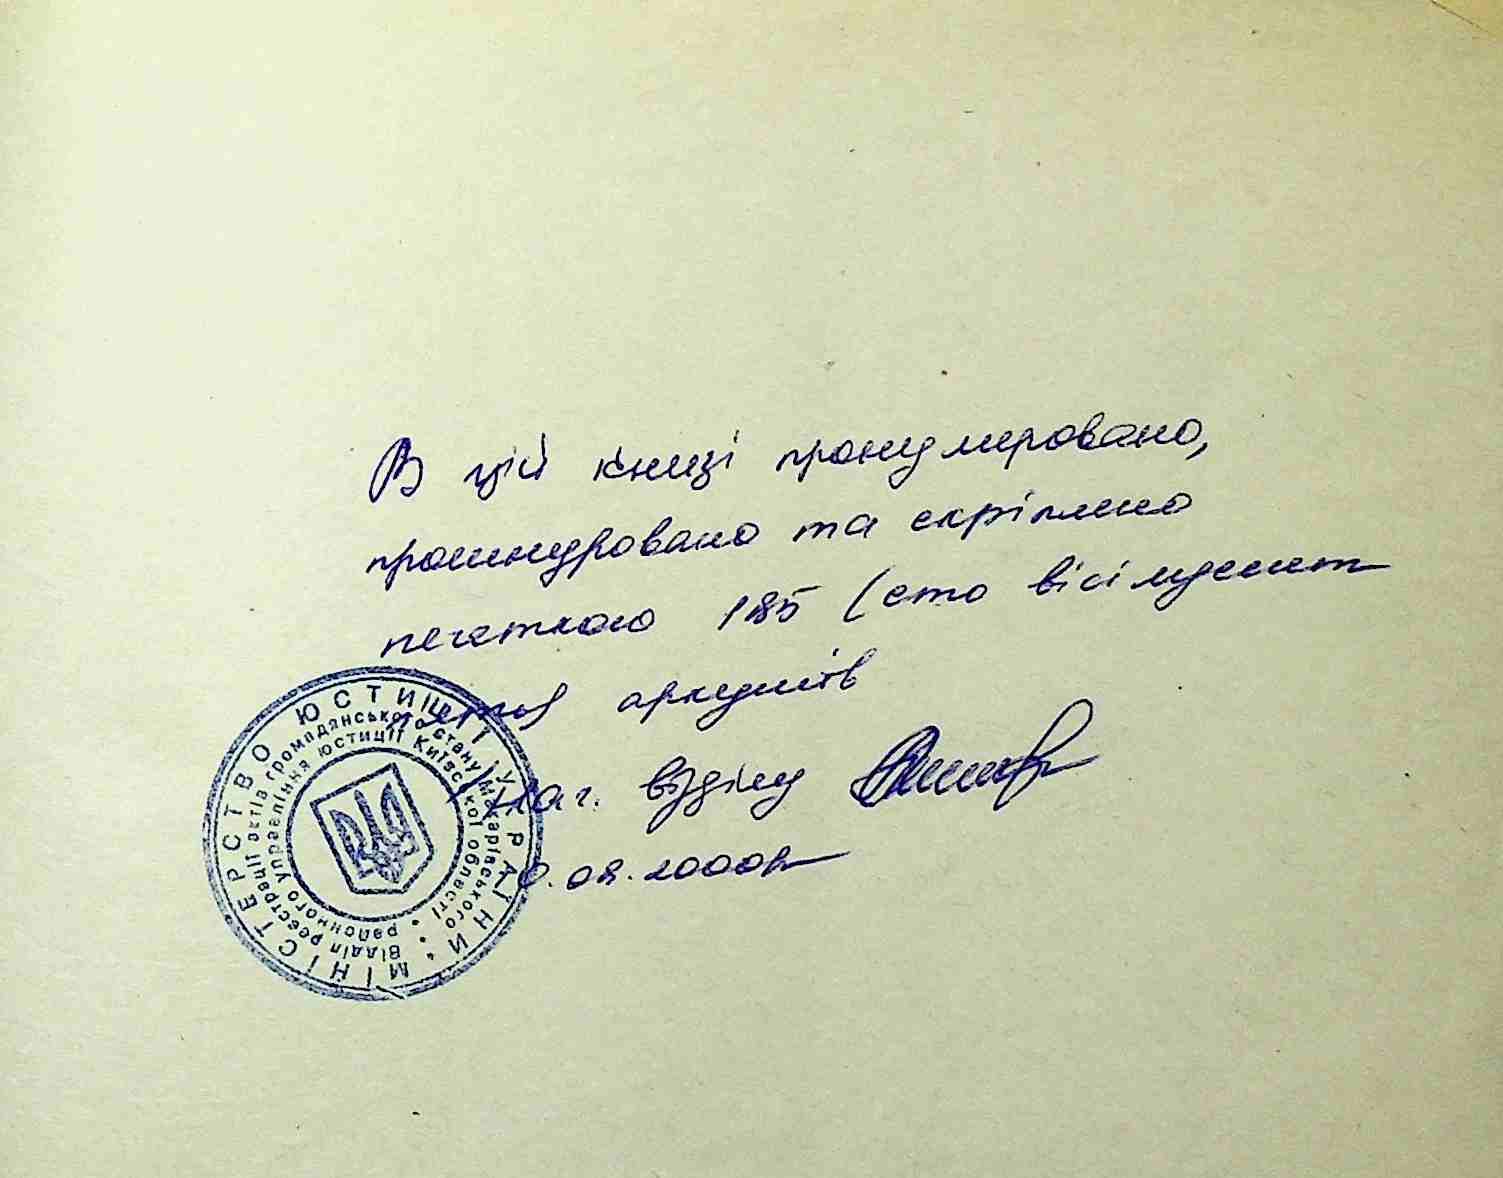 В цій книзі пронумеровано,
прошнуровано та скріплено
печаткою 185 (сто вісімдесят
п'ять) аркушів
Нач. відділу
0.08.2000р
МІНІСТЕРСТВО ЮСТИЦІЇ УКРАЇНИ
Відділ реєстрації актів громадянського стану Макарівського
районного управління юстиції Київської області